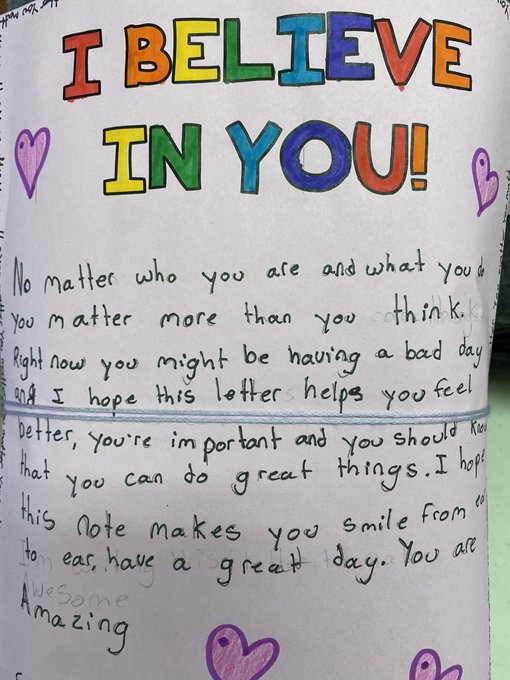 I BELIEVE
IN YOU!
No matter who you are and what you do
you matter more than you think.
Right now you might be having a bad day
and I hope this letter helps you feel
better, you're important and you should know
that you can do great things. I hope
this note makes you smile from ea
to ear, have a great day. You are
Awesome
Amazing